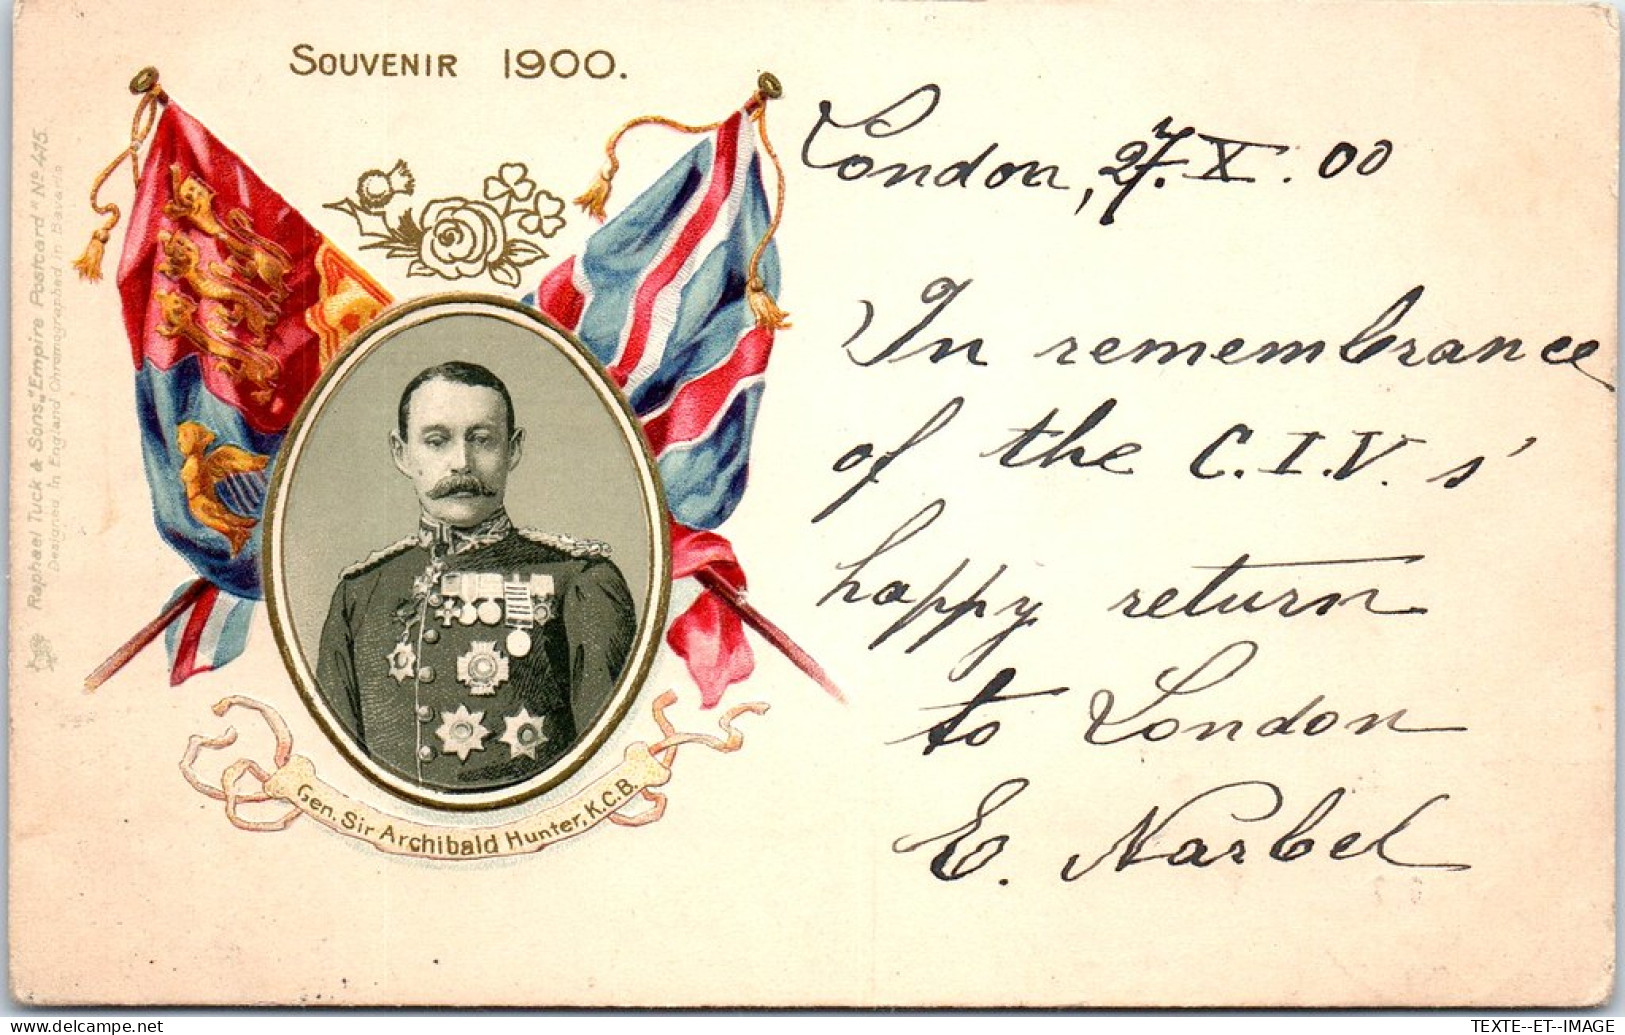 SOUVENIR 1900.
Raphael Tuck & Sons "Empire Postcard" No. 415.
Designed in England Chromographed in Bavaria
Gen. Sir Archibald Hunter, K.C.B.
London, 27. X. 00
In remembrance
of the C.I.V.s'
happy return
to London
E. Narbel
delcampe.net
TEXTE--ET--IMAGE